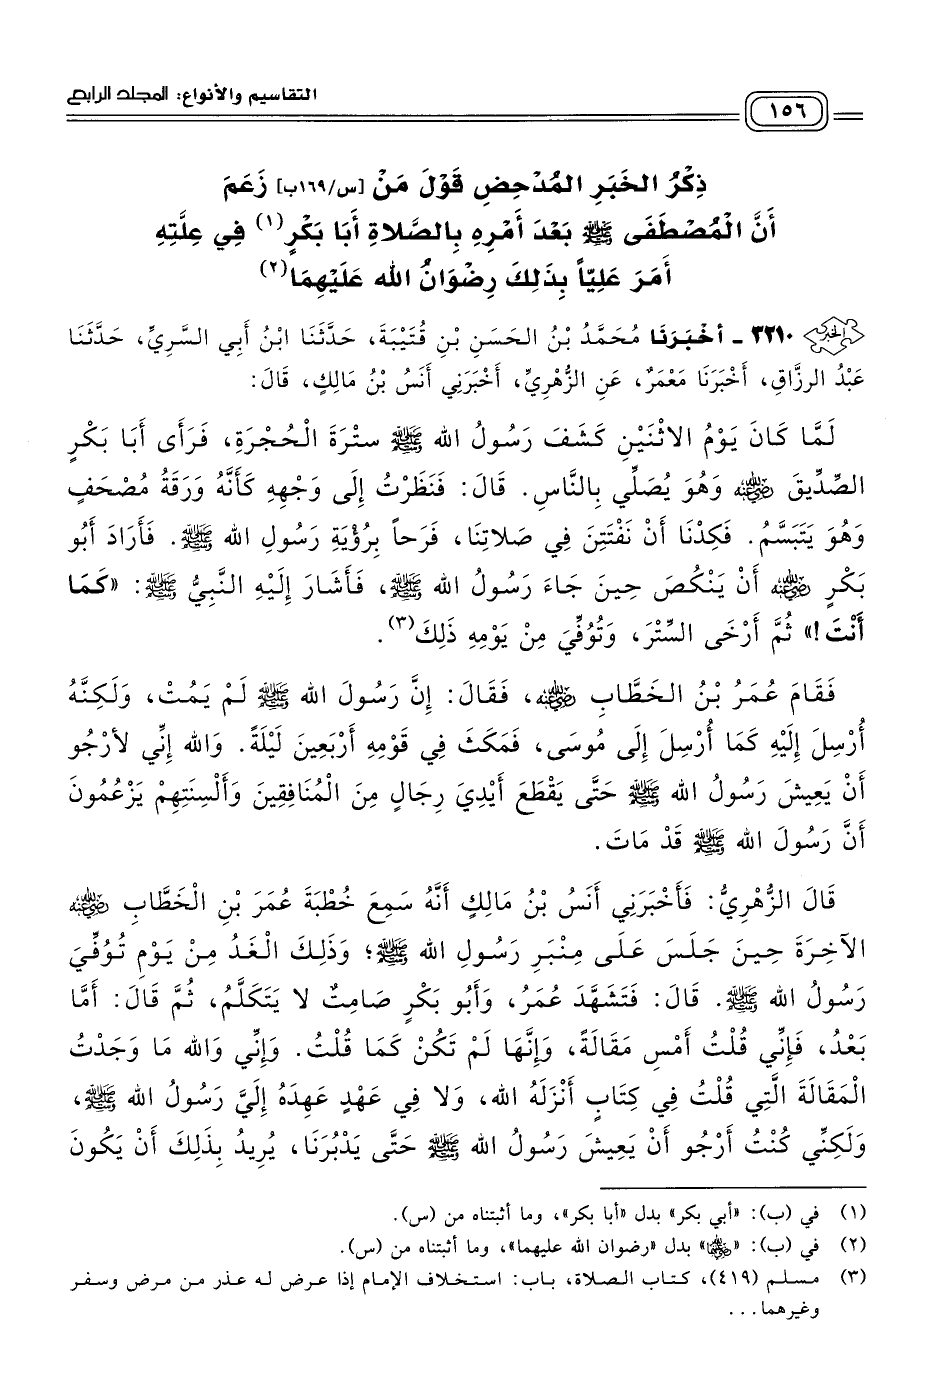 التقاسيم والأنواع: المجلد الرابع
١٥٦
ذِكْرُ الخَبَرِ المُدْحِضِ قَوْلَ مَنْ [س/١٦٩ب] زَعَمَ
أَنَّ الْمُصْطَفَى ﷺ بَعْدَ أَمْرِهِ بِالصَّلَاةِ أَبَا بَكْرٍ(١) فِي عِلَّتِهِ
أَمَرَ عَلِيّاً بِذَلِكَ رِضْوَانُ الله عَلَيْهِمَا(٢)
الخبر ٣٢١٠ - أَخْبَرَنَا مُحَمَّدُ بْنُ الحَسَنِ بْنِ قُتَيْبَةَ، حَدَّثَنَا ابْنُ أَبِي السَّرِيِّ، حَدَّثَنَا
عَبْدُ الرزَّاقِ، أَخْبَرَنَا مَعْمَرٌ، عَنِ الزُّهْرِيِّ، أَخْبَرَنِي أَنَسُ بْنُ مَالِكٍ، قَالَ:
لَمَّا كَانَ يَوْمُ الاثْنَيْنِ كَشَفَ رَسُولُ الله ﷺ سُتْرَةَ الْحُجْرَةِ، فَرَأَى أَبَا بَكْرٍ
الصِّدِّيقَ ﵁ وَهُوَ يُصَلِّي بِالنَّاسِ. قَالَ: فَنَظَرْتُ إِلَى وَجْهِهِ كَأَنَّهُ وَرَقَةُ مُصْحَفٍ
وَهُوَ يَتَبَسَّمُ. فَكِدْنَا أَنْ نَفْتَتِنَ فِي صَلاتِنَا، فَرَحاً بِرُؤْيَةِ رَسُولِ الله ﷺ. فَأَرَادَ أَبُو
بَكْرٍ ﵁ أَنْ يَنْكُصَ حِينَ جَاءَ رَسُولُ الله ﷺ، فَأَشَارَ إِلَيْهِ النَّبِيُّ ﷺ: «كَمَا
أَنْتَ!» ثُمَّ أَرْخَى السِّتْرَ، وَتُوُفِّيَ مِنْ يَوْمِهِ ذَلِكَ(٣).
فَقَامَ عُمَرُ بْنُ الخَطَّابِ ﵁، فَقَالَ: إِنَّ رَسُولَ الله ﷺ لَمْ يَمُتْ، وَلَكِنَّهُ
أُرْسِلَ إِلَيْهِ كَمَا أُرْسِلَ إِلَى مُوسَى، فَمَكَثَ فِي قَوْمِهِ أَرْبَعِينَ لَيْلَةً. وَالله إِنِّي لأرْجُو
أَنْ يَعِيشَ رَسُولُ الله ﷺ حَتَّى يَقْطَعَ أَيْدِيَ رِجَالٍ مِنَ الْمُنَافِقِينَ وَأَلْسِنَتِهِمْ يَزْعُمُونَ
أَنَّ رَسُولَ الله ﷺ قَدْ مَاتَ.
قَالَ الزُّهْرِيُّ: فَأَخْبَرَنِي أَنَسُ بْنُ مَالِكٍ أَنَّهُ سَمِعَ خُطْبَةَ عُمَرَ بْنِ الْخَطَّابِ ﵁
الآخِرَةَ حِينَ جَلَسَ عَلَى مِنْبَرِ رَسُولِ الله ﷺ؛ وَذَلِكَ الْغَدُ مِنْ يَوْمِ تُوُفِّيَ
رَسُولُ الله ﷺ. قَالَ: فَتَشَهَّدَ عُمَرُ، وَأَبُو بَكْرٍ صَامِتٌ لا يَتَكَلَّمُ، ثُمَّ قَالَ: أَمَّا
بَعْدُ، فَإِنِّي قُلْتُ أَمْسِ مَقَالَةً، وَإِنَّهَا لَمْ تَكُنْ كَمَا قُلْتُ. وَإِنِّي وَالله مَا وَجَدْتُ
الْمَقَالَةَ الَّتِي قُلْتُ فِي كِتَابٍ أَنْزَلَهُ الله، وَلا فِي عَهْدٍ عَهِدَهُ إِلَيَّ رَسُولُ الله ﷺ،
وَلَكِنِّي كُنْتُ أَرْجُو أَنْ يَعِيشَ رَسُولُ الله ﷺ حَتَّى يَدْبُرَنَا، يُرِيدُ بِذَلِكَ أَنْ يَكُونَ
(١) في (ب): «أبي بكر» بدل «أبا بكر»، وما أثبتناه من (س).
(٢) في (ب): «﵄» بدل «رضوان الله عليهما»، وما أثبتناه من (س).
(٣) مسلم (٤١٩)، كتاب الصلاة، باب: استخلاف الإمام إذا عرض له عذر من مرض وسفر
وغيرهما...